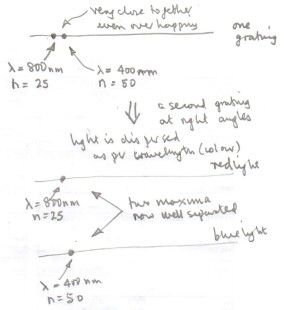 very close together
even overlapping
one
grating
λ = 800nm
n = 25
λ = 400nm
n = 50
a second grating
at right angles
light is dispersed
as per wavelength (colour)
red light
λ = 800nm
n = 25
two maxima
now well separated
blue light
λ = 400nm
n = 50